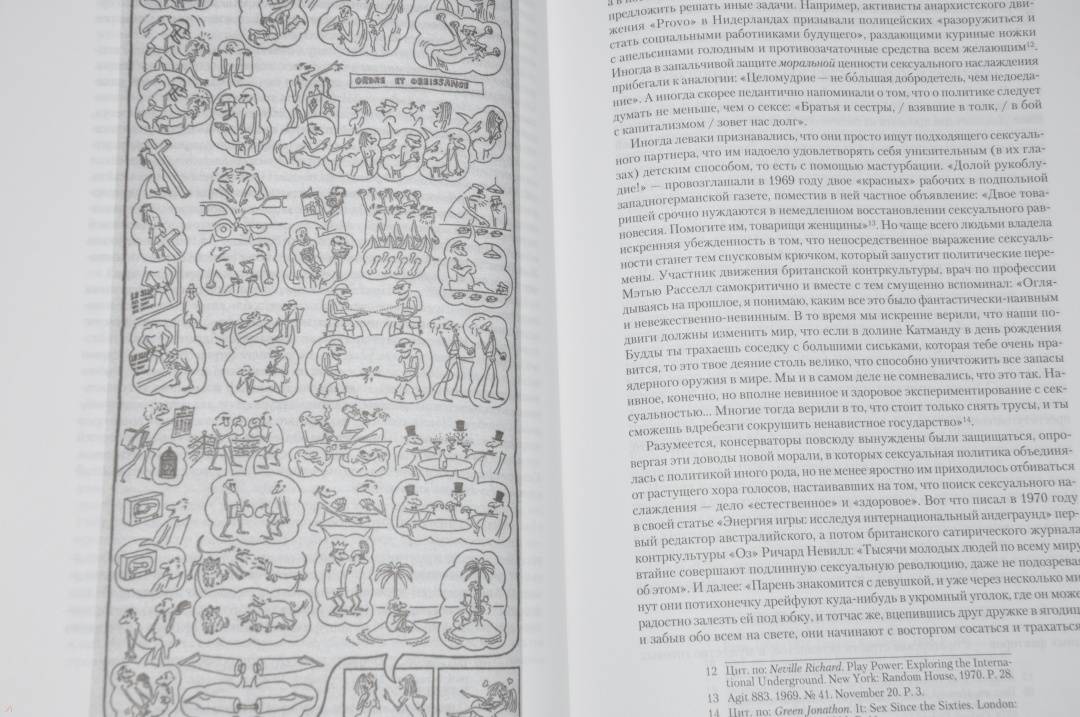 ORDRE ET OBEISSANCE
предложить решать иные задачи. Например, активисты анархистского дви-
жения «Provo» в Нидерландах призывали полицейских «разоружиться и
стать социальными работниками будущего», раздающими куриные ножки
с апельсинами голодным и противозачаточные средства всем желающим¹².
Иногда в запальчивой защите моральной ценности сексуального наслаждения
прибегали к аналогии: «Целомудрие — не бо́льшая добродетель, чем недоеда-
ние». А иногда скорее педантично напоминали о том, что о политике следует
думать не меньше, чем о сексе: «Братья и сестры, / взявшие в толк, / в бой
с капитализмом / зовет нас долг».
Иногда леваки признавались, что они просто ищут подходящего сексуаль-
ного партнера, что им надоело удовлетворять себя унизительным (в их гла-
зах) детским способом, то есть с помощью мастурбации. «Долой рукоблу-
дие!» — провозглашали в 1969 году двое «красных» рабочих в подпольной
западногерманской газете, поместив в ней частное объявление: «Двое това-
рищей срочно нуждаются в немедленном восстановлении сексуального рав-
новесия. Помогите им, товарищи женщины»¹³. Но чаще всего людьми владела
искренняя убежденность в том, что непосредственное выражение сексуаль-
ности станет тем спусковым крючком, который запустит политические пере-
мены. Участник движения британской контркультуры, врач по профессии
Мэтью Расселл самокритично и вместе с тем смущенно вспоминал: «Огля-
дываясь на прошлое, я понимаю, каким все это было фантастически-наивным
и невежественно-невинным. В то время мы искренне верили, что наши по-
двиги должны изменить мир, что если в долине Катманду в день рождения
Будды ты трахаешь соседку с большими сиськами, которая тебе очень нра-
вится, то это твое деяние столь велико, что способно уничтожить все запасы
ядерного оружия в мире. Мы и в самом деле не сомневались, что это так. На-
ивное, конечно, но вполне невинное и здоровое экспериментирование с сек-
суальностью... Многие тогда верили в то, что стоит только снять трусы, и ты
сможешь вдребезги сокрушить ненавистное государство»¹⁴.
Разумеется, консерваторы повсюду вынуждены были защищаться, опро-
вергая эти доводы новой морали, в которых сексуальная политика объединя-
лась с политикой иного рода, но не менее яростно им приходилось отбиваться
от растущего хора голосов, настаивавших на том, что поиск сексуального на-
слаждения — дело «естественное» и «здоровое». Вот что писал в 1970 году
в своей статье «Энергия игры: исследуя интернациональный андеграунд» пер-
вый редактор австралийского, а потом британского сатирического журнала
контркультуры «Оз» Ричард Невилл: «Тысячи молодых людей по всему миру
втайне совершают подлинную сексуальную революцию, даже не подозревая
об этом». И далее: «Парень знакомится с девушкой, и уже через несколько ми-
нут они потихонечку дрейфуют куда-нибудь в укромный уголок, где он може
радостно залезть ей под юбку, и тотчас же, вцепившись друг дружке в ягодиц
и забыв обо всем на свете, они начинают с восторгом сосаться и трахаться
12 Цит. по: Neville Richard. Play Power: Exploring the Interna-
tional Underground. New York: Random House, 1970. P. 28.
13 Agit 883. 1969. № 41. November 20. P. 3.
14 Цит. по: Green Jonathon. It: Sex Since the Sixties. London: